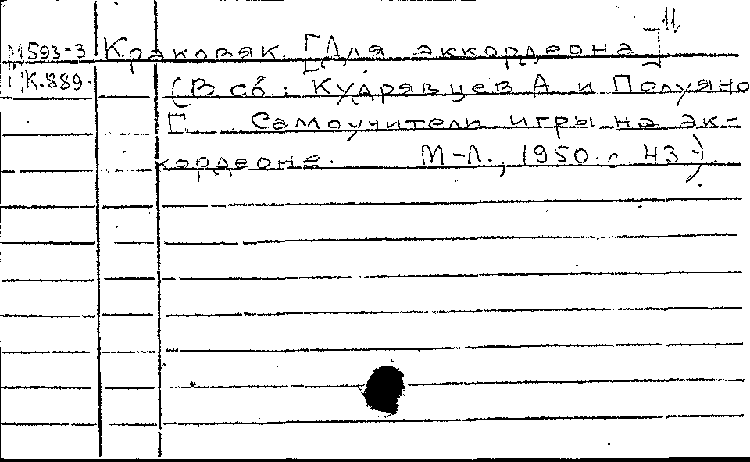 11
М593-3 Краковяк. [Для аккордеона]
К.889. (В сб: Кудрявцев А и Полуяно
Г. Самоучитель игры на ак-
кордеоне. М-Л., 1950. с 43.)